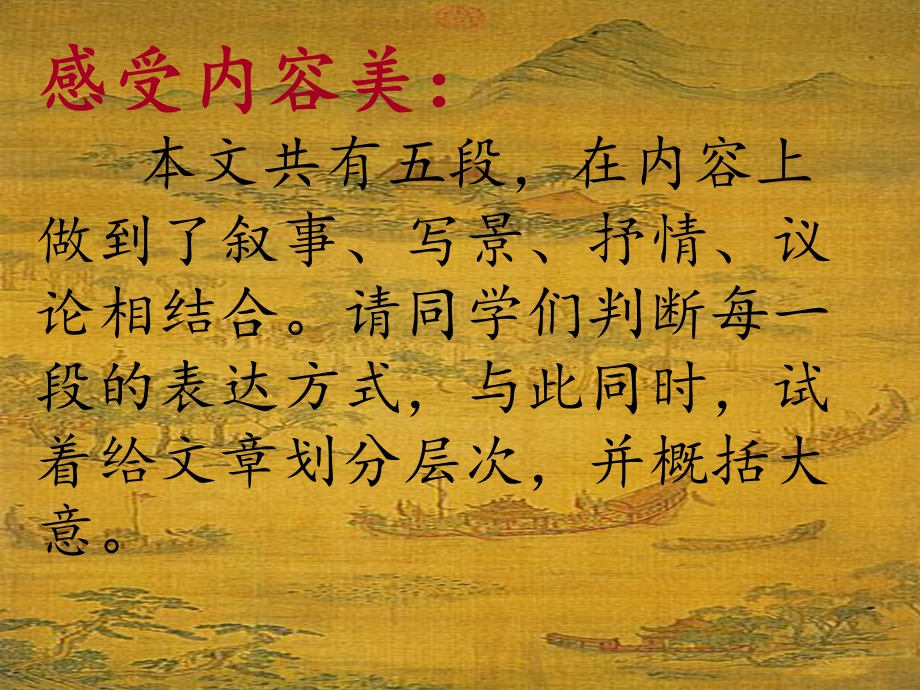 感受内容美：
本文共有五段，在内容上
做到了叙事、写景、抒情、议
论相结合。请同学们判断每一
段的表达方式，与此同时，试
着给文章划分层次，并概括大
意。